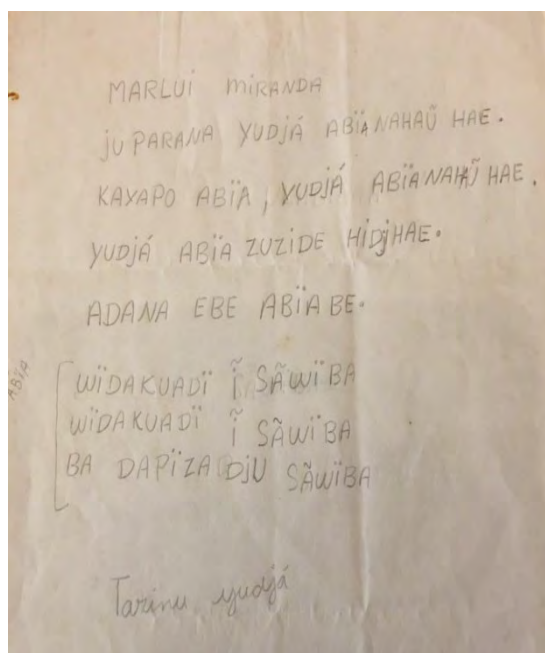 MARLUI MIRANDA
JU PARANA YUDJÁ ABÏA NAHAŨ HAE.
KAYAPO ABÏA, YUDJÁ ABÏA NAHAŨ HAE.
YUDJÁ ABÏA ZUZIDE HIDJHAE.
ADANA EBE ABÏA BE.
ABÏA
WÏDAKUADÏ Ĩ SÃWÏBA
WÏDAKUADÏ Ĩ SÃWÏBA
BA DAPÏZA DJU SÃWÏBA
Tarinu yudjá